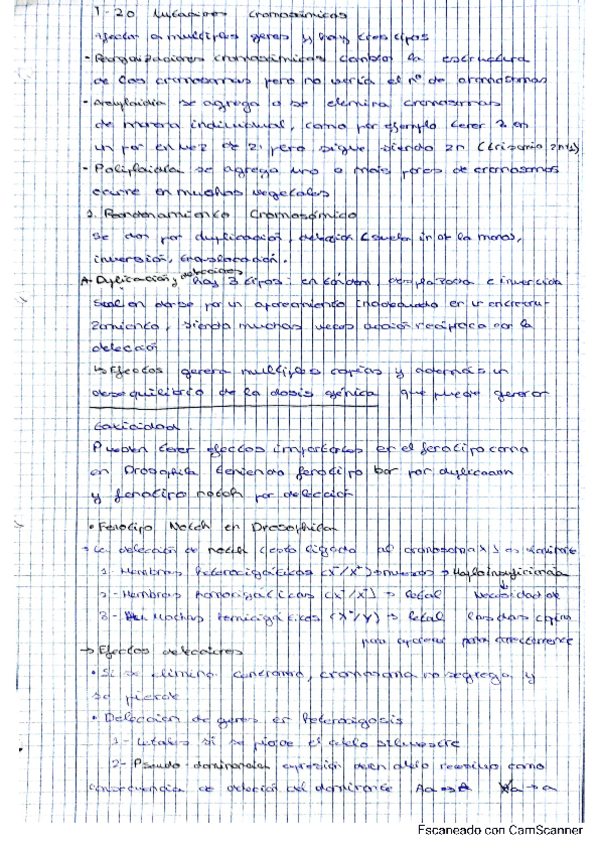 T-20 Mutaciones cromosómicas
Afectan a multiples genes y hay tres tipos
- Reorganizaciones cromosómicas cambia la estructura
de los cromosomas pero no varía el nº de cromosomas
- Aneuploidía se agrega o se elimina cromosomas
de manera individual, como por ejemplo tener 3 en
un par en vez de 2, pero sigue siendo 2n (trisomía 2n+1)
- Poliploidía se agrega uno o más pares de cromosomas
ocurre en muchos vegetales
1. Reordenamiento Cromosómico
Se dan por duplicación, deleción (
inversión, translocación.
A- Duplicación y deleciones hay 3 tipos: en tándem, desplazada e invertida
Suelen darse por un apareamiento inadecuado en un entrecru-
zamiento, siendo muchas veces acción recíproca con la
deleción
↳ Efectos genera multiples copias y además un
desequilibrio de la dosis génica que puede generar
toxicidad
Pueden tener efectos importantes en el fenotipo como
en Drosophila teniendo fenotipo bar por duplicación
y fenotipo notch por deleción
• Fenotipo Notch en Drosophila
→ La deleción de notch (esta ligado al cromosoma X) es
1- Hembras heterocigóticas (X⁻/X⁺) → Haploinsuficiencia
2- Hembras homocigóticas (X⁻/X⁻) → letal necesidad de
3- Machos hemicigóticos (X⁻/Y) → letal las dos copias
para correctamente
→ Efectos deleciones
• Si se elimina centrómero, cromosoma no segrega y
se pierde
• Deleción de genes en heterocigosis
1- Letales si se pierde el alelo silvestre
2- Pseudo-dominancia expresión de un alelo recesivo como
consecuencia de deleción del dominante Aa → A a → a
Escaneado con CamScanner